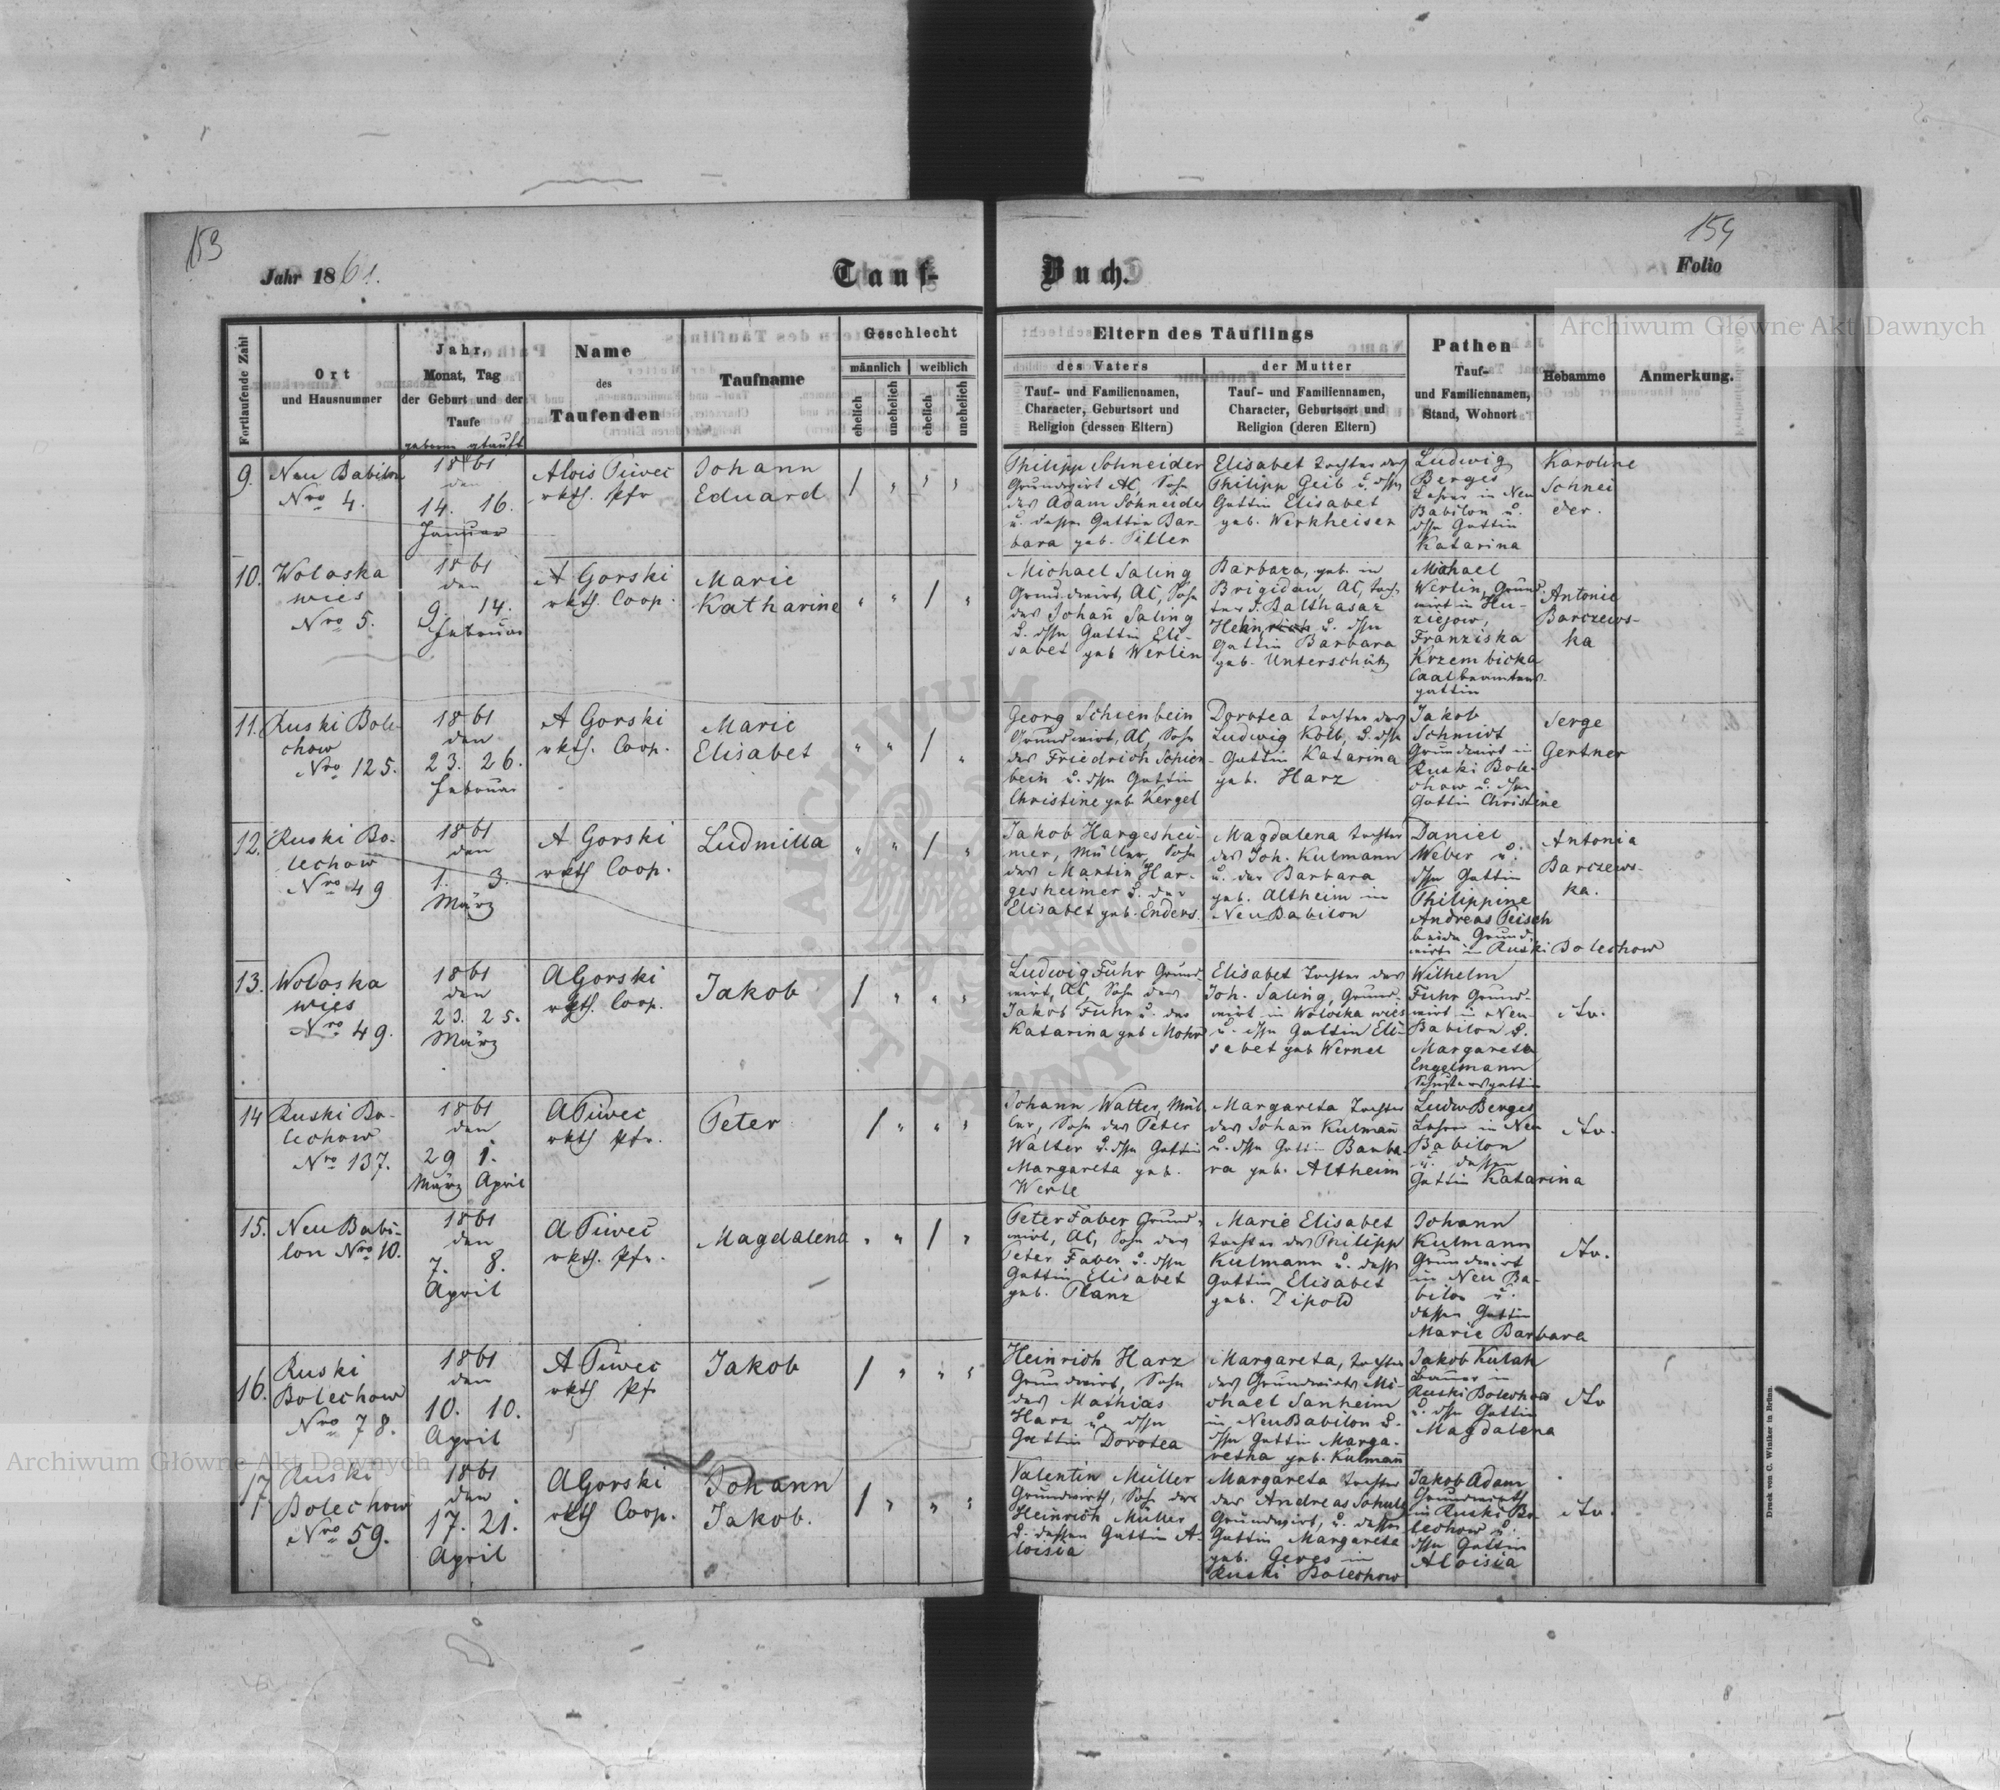 153
154
Jahr 1861.
Tauf-
Buch.
Folio
Fortlaufende Zahl
Ort
und Hausnummer
Jahr,
Monat, Tag
der Geburt und der
Taufe
geboren getauft
Name
des
Taufenden
Taufname
Geschlecht
männlich
weiblich
ehelich
unehelich
ehelich
unehelich
Eltern des Täuflings
des Vaters
Tauf- und Familiennamen,
Character, Geburtsort und
Religion (dessen Eltern)
der Mutter
Tauf- und Familiennamen,
Character, Geburtsort und
Religion (deren Eltern)
Pathen
Tauf-
und Familiennamen,
Stand, Wohnort
Hebamme
Anmerkung.
9.
Neu Babilon
Nro 4.
1861
den
14. 16.
Januar
Alois Piwec
rkth. Pfr
Johann
Eduard
Philipp Schneider
Grundwirt AC, Sohn
des Adam Schneider
u. dessen Gattin Bar-
bara geb.
Elisabet Tochter des
Philipp Geib u. dssn
Gattin Elisabet
geb. Werkheiser
Ludwig
Berges
Lehrer in Neu
Babilon u.
dssn Gattin
Katarina
Karoline
Schnei
der.
10.
Woloska
wies
Nro 5.
1861
den
9. 14.
Februar
A Gorski
rkth. Coop.
Marie
Katharine
Michael Saling
Grundwirt, AC, Sohn
des Johañ Saling
u. dssn Gattin Eli-
sabet geb Werlin
Barbara, geb. in
Brigidau AC, Toch-
ter d. Balthasar
Heinrich u. dssn
Gattin Barbara
geb. Unterschütz
Michael
Werlin, Grund-
wirt in Hu-
ziejow,
Franziska
Krzembicka
gattin
Antonie
Barczews-
ka
11.
Ruski Bole-
chow
Nro 125.
1861
den
23. 26.
Februar
A Gorski
rkth. Coop.
Marie
Elisabet
Georg Schienbein
Grundwirt, AC, Sohn
des Friedrich Schien-
bein u. dssn Gattin
Christine geb. Kergel
Dorotea Tochter des
Ludwig Kolb, u. dssn
Gattin Katarina
geb. Harz
Jakob
Schmidt
Grundwirt in
Ruski Bole-
chow u. dssn
Gattin Christine
Serge
Gertner
12.
Ruski Bo-
lechow
Nro 49
1861
den
1. 3.
März
A Gorski
rkth Coop.
Ludmilla
Jakob Hargeshei-
mer, Müller, Sohn
des Martin Har-
gesheimer u. der
Elisabet geb. Enders.
Magdalena Tochter
des Joh. Kulmann
u. der Barbara
geb. Altheim in
Neu Babilon
Daniel
Weber u.
dssn Gattin
Philippine
Andreas Peisch
beide Grund-
wirte in Ruski Bolechow
Antonia
Barczews-
ka.
13.
Woloska
wies
Nro 49.
1861
den
23. 25.
März
A Gorski
rkth. Coop.
Jakob
Ludwig Fuhr Grund-
wirt, AC, Sohn des
Jakob Fuhr u. der
Katarina geb Mohr
Elisabet Tochter des
Joh. Saling, Grund-
wirt in Woloska wies
u. dssn Gattin Eli-
sabet geb Wernel
Wilhelm
Fuhr Grund-
wirt in Neu-
Babilon u.
Margareta
Engelmann
Schustersgattin
14
Ruski Bo-
lechow
Nro 137.
1861
den
29 1.
März April
A Piwec
rkth Pfr.
Peter
Johann Walter, Mül-
ler, Sohn des Peter
Walter u. dssn Gattin
Margareta geb.
Werle
Margareta Tochter
des Johan Kulmañ
u. dssn Gattin Barba-
ra geb. Altheim
Ludw Berges
Lehrer in Neu
Babilon
u. dessen
Gattin Katarina
15.
Neu Babi-
lon Nro 10.
1861
den
7. 8.
April
A Piwec
rkth. Pfr.
Magdalena
Peter Faber Grund-
wirt, AC, Sohn des
Peter Faber u. dssn
Gattin Elisabet
geb. Planz
Marie Elisabet
Tochter des Philipp
Kulmann u. dessn
Gattin Elisabet
geb. Dipold
Johann
Kulmann
Grundwirt
in Neu Ba-
bilon u.
dessen Gattin
Marie Barbara
16.
Ruski
Bolechow
Nro 78.
1861
den
10. 10.
April
A Piwec
rkth Pfr
Jakob
Heinrich Harz
Grundwirt, Sohn
des Mathias
Harz u. dssn
Gattin Dorotea
Margareta, Tochter
des Grundwirts Mi-
chael Sanheim
in Neu Babilon u.
dssn Gattin Marga-
retha geb. Kulmañ
Jakob Kulah
Bauer in
Ruski Bolechow
u. dssn Gattin
Magdalena
17
Ruski
Bolechow
Nro 59.
1861
den
17. 21.
April
A Gorski
rkth Coop.
Johann
Jakob.
Valentin Müller
Grundwirth, Sohn des
Heinrich Müller
u. dessen Gattin A-
loisia
Margareta Tochter
des Andreas Schulz
Grundwirt, u. dessen
Gattin Margareta
geb. Geres in
Ruski Bolechow
Jakob Adam
Grundwirth
in Ruski Bo-
lechow u.
dssn Gattin
Aloisia
Druck von C. Winiker in Brünn.
Archiwum Główne Akt Dawnych
Archiwum Główne Akt Dawnych